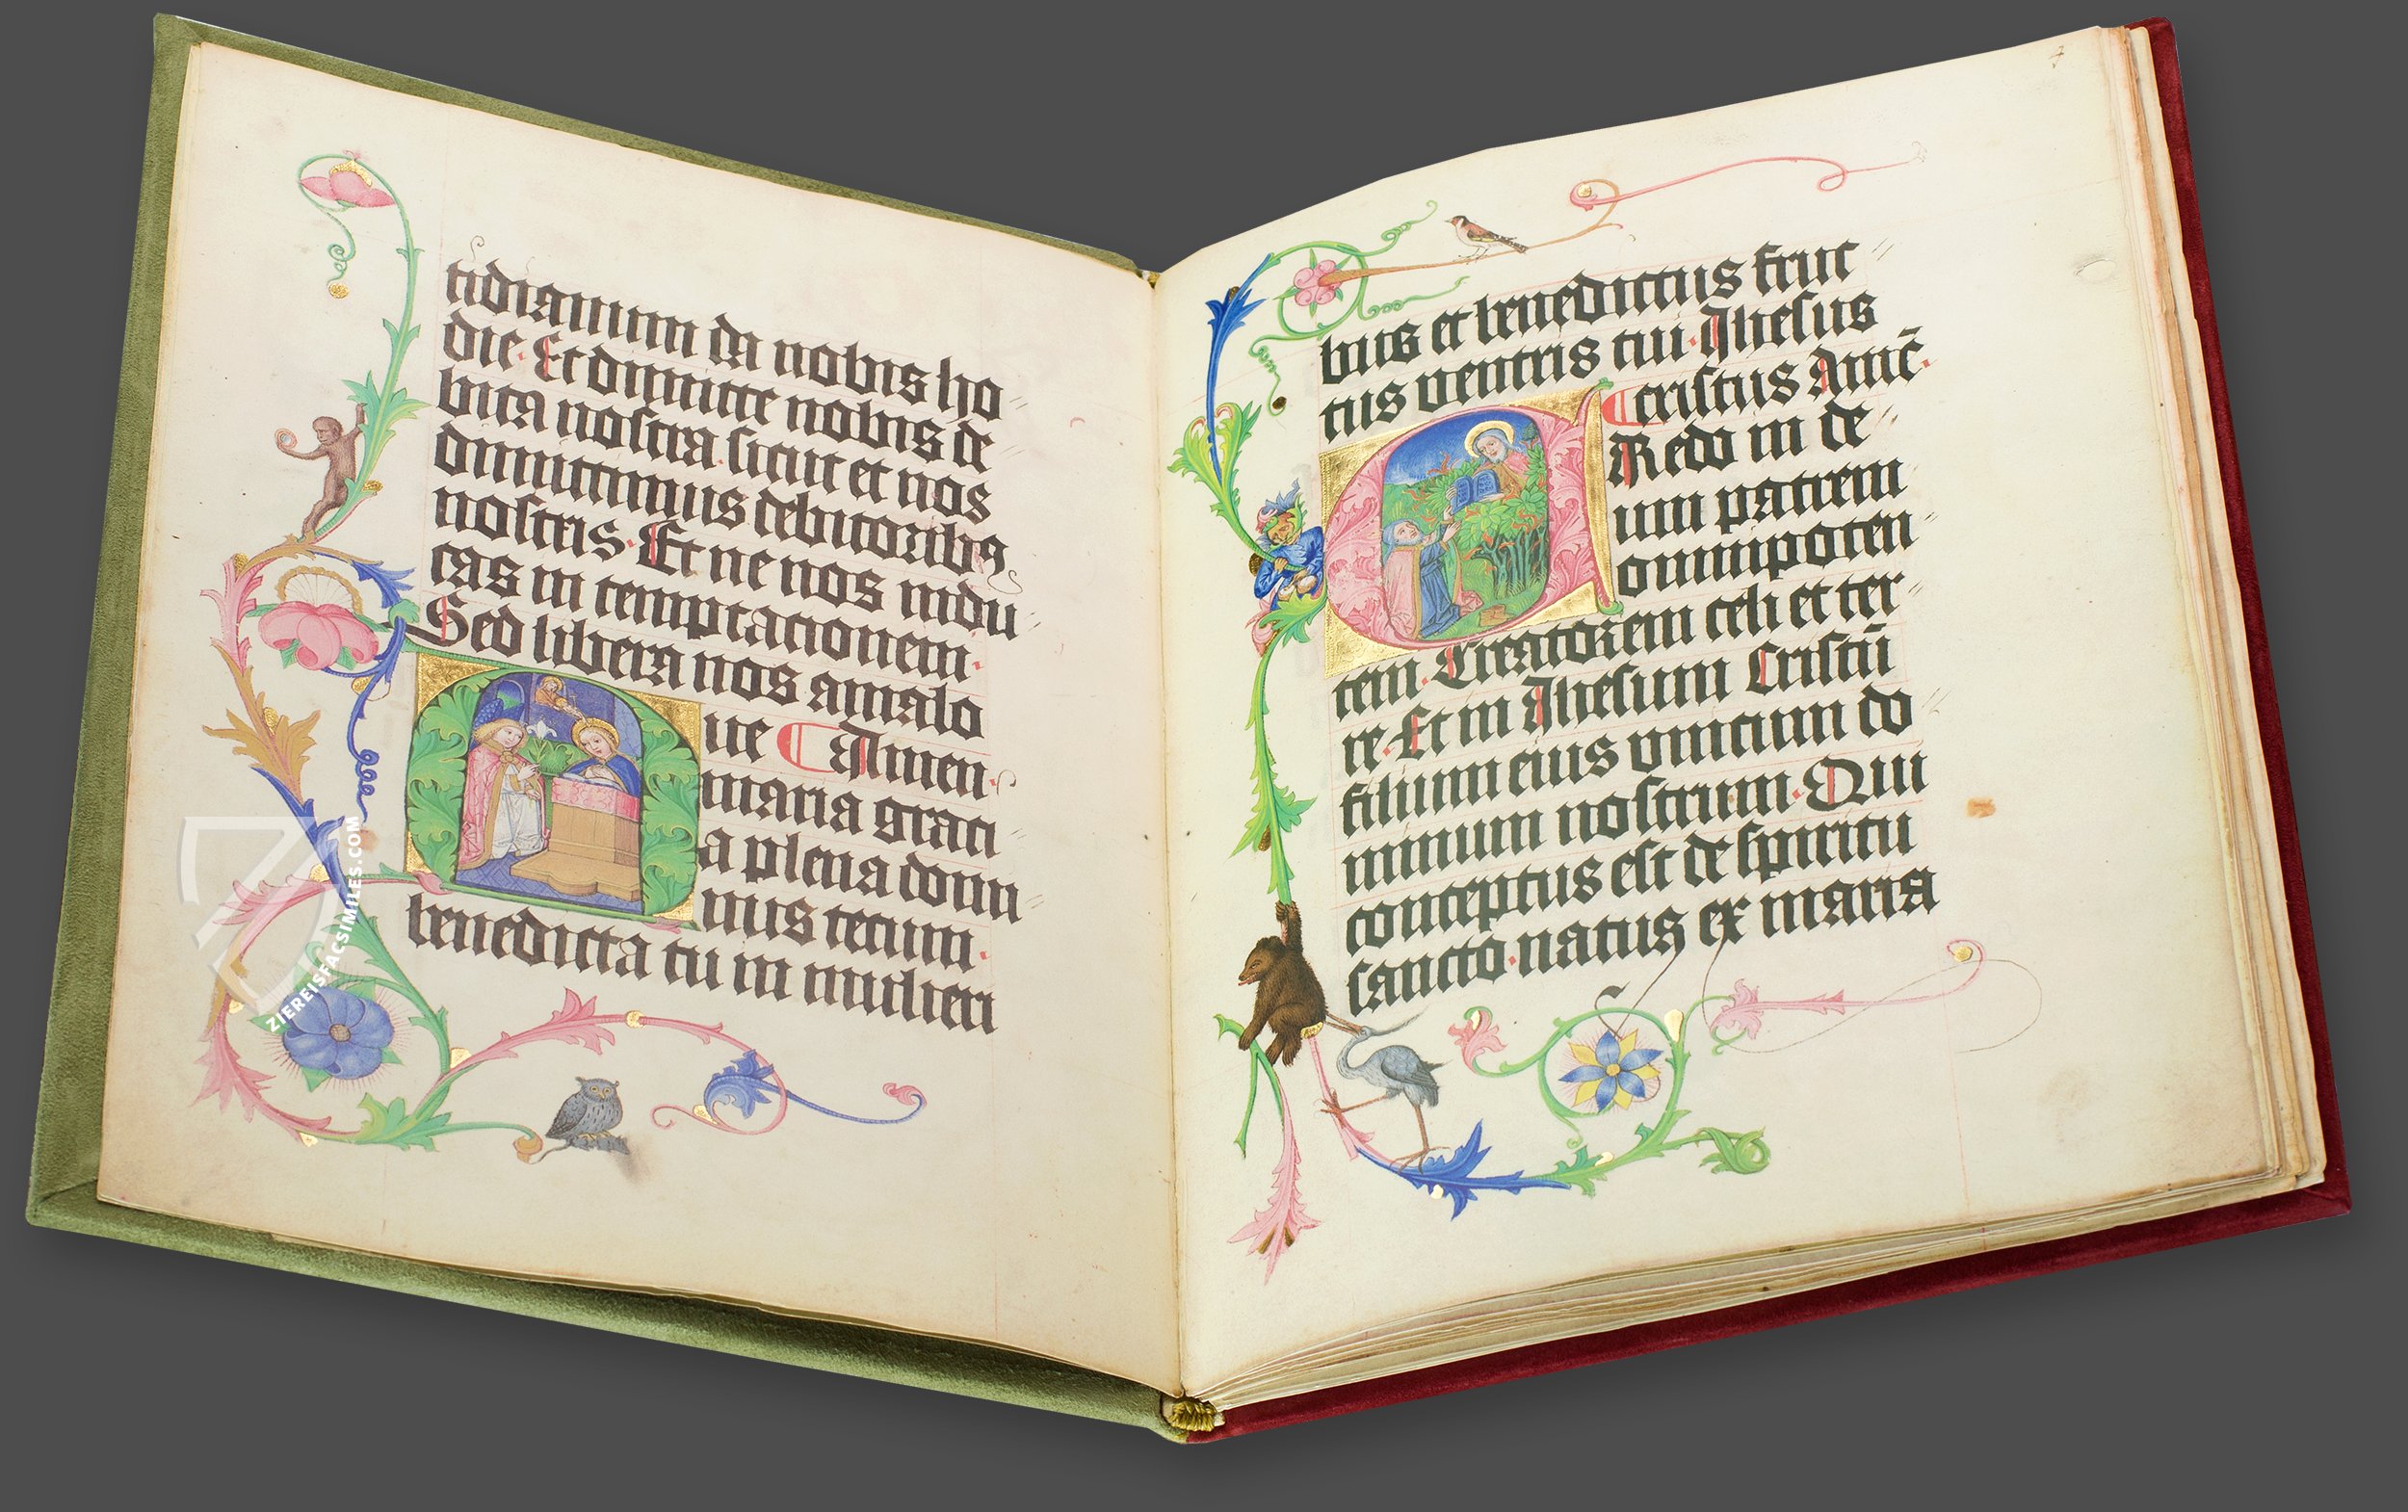 tidianum da nobis ho
die. Et dimitte nobis de
bita nostra. sicut et nos
dimittimus debitoribꝰ
nostris. Et ne nos indu
cas in temptationem.
Sed libera nos amalo
ue Amen.
maria grati
a plena domi
nus tecum.
benedicta tu in mulieri
ZIEREISFACSIMILES.COM
7
bus et benedictus fruc
tus ventris tui. Ihesus
cristus Amē.
Redo in de
um patrem
omnipoten
tem. Creatorem celi et ter
re. Et in Ihesum Cristū
filium eius vnicum do
minum nostrum. Qui
conceptus est de spiritu
sancto. natus ex maria